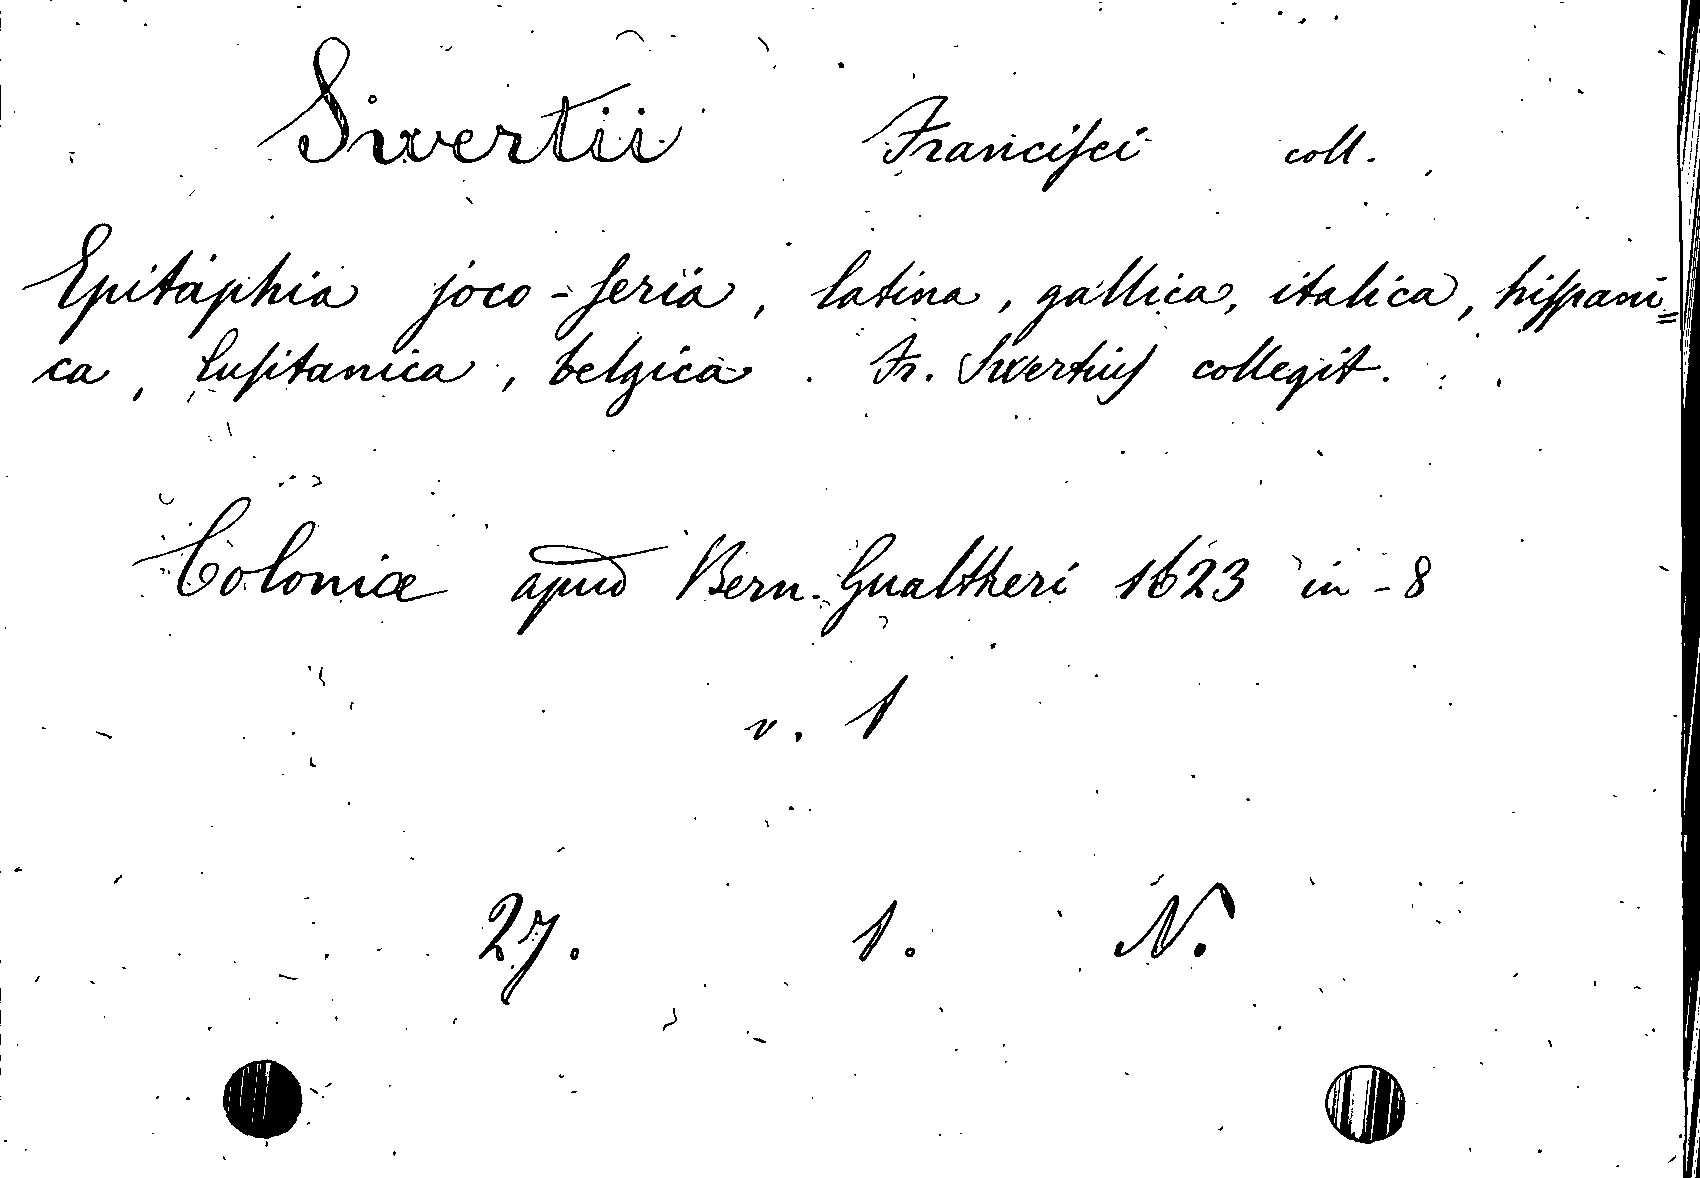 Swertii Francisci coll.
Epitaphia joco-seria, latina, gallica, italica, hispani=
ca, lusitanica, belgica. Fr. Swertius collegit.
Coloniæ apud Bern. Gualtheri 1623 in-8
v. 1
27. 1. N.